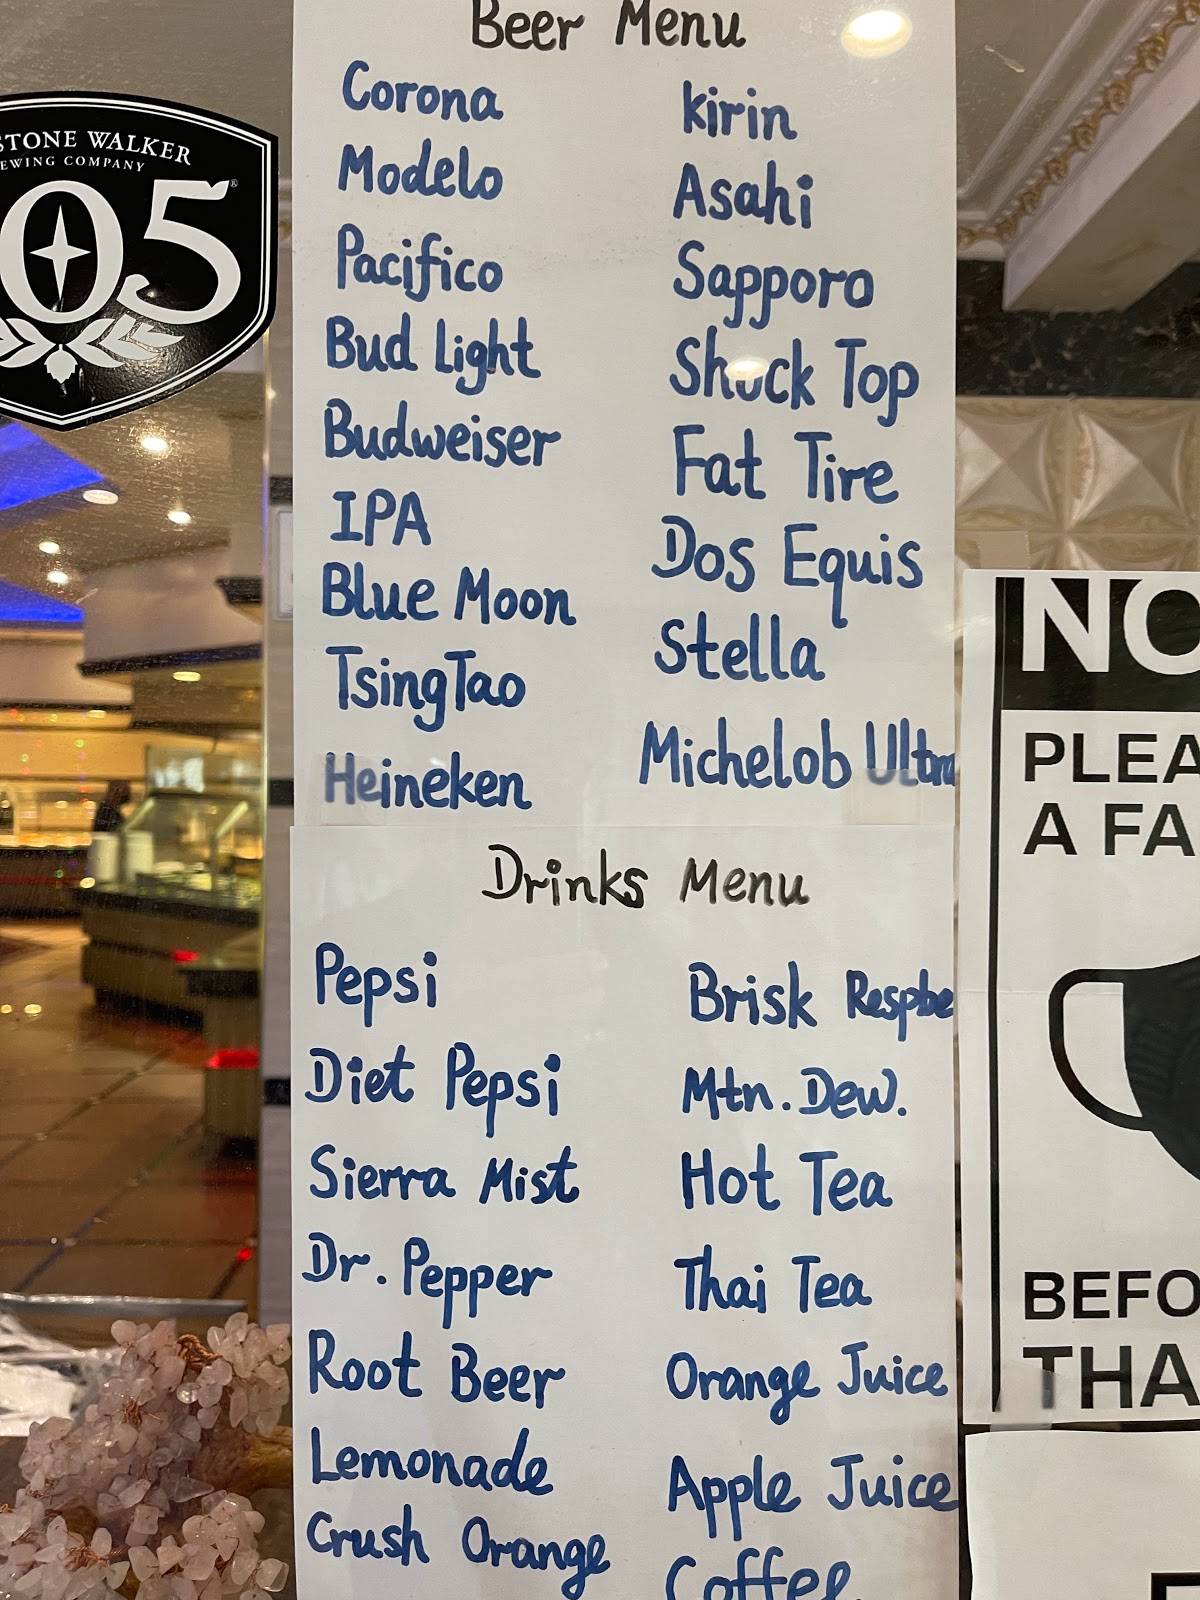 Beer Menu
Corona
Modelo
Pacifico
Bud Light
Budweiser
IPA
Blue Moon
TsingTao
Heineken
Kirin
Asahi
Sapporo
Shock Top
Fat Tire
Dos Equis
Stella
Michelob Ultra
Drinks Menu
Pepsi
Diet Pepsi
Sierra Mist
Dr. Pepper
Root Beer
Lemonade
Crush Orange
Brisk Raspbe
Mtn. Dew.
Hot Tea
Thai Tea
Orange Juice
Apple Juice
Coffee
STONE WALKER
EWING COMPANY
05
NO
PLEA
A FA
BEFO
THA